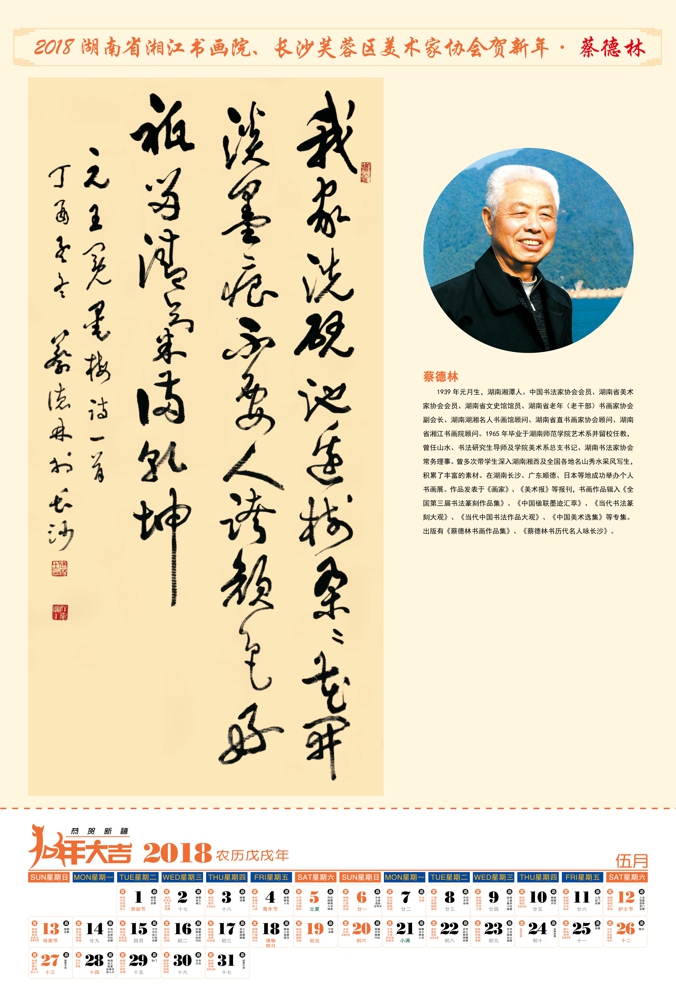 2018 湖南省湘江书画院、长沙芙蓉区美术家协会贺新年·蔡德林
我家洗砚池边树朵〻花开
淡墨痕不要人夸颜色好
祗留清气满乾坤
元王冕墨梅诗一首
丁酉冬 蔡德林书于长沙
蔡德林
1939年元月生，湖南湘潭人。中国书法家协会会员、湖南省美术
家协会会员、湖南省文史馆馆员、湖南省老年（老干部）书画家协会
副会长、湖南湖湘名人书画馆顾问、湖南省直书画家协会顾问、湖南
省湘江书画院顾问。1965年毕业于湖南师范学院艺术系并留校任教，
曾任山水、书法研究生导师及学院美术系总支书记、湖南书法家协会
常务理事。曾多次带学生深入湖南湘西及全国各地名山秀水采风写生，
积累了丰富的素材。在湖南长沙、广东顺德、日本等地成功举办个人
书画展。作品发表于《画家》、《美术报》等报刊，书画作品辑入《全
国第三届书法篆刻作品集》、《中国楹联墨迹汇萃》、《当代书法篆
刻大观》、《当代中国书法作品大观》、《中国美术选集》等专集。
出版有《蔡德林书画作品集》、《蔡德林书历代名人咏长沙》。
恭贺新禧
狗年大吉 2018 农历戊戌年
伍月
SUN星期日 MON星期一 TUE星期二 WED星期三 THU星期四 FRI星期五 SAT星期六 SUN星期日 MON星期一 TUE星期二 WED星期三 THU星期四 FRI星期五 SAT星期六
1 2 3 4 5 6 7 8 9 10 11 12
劳动节 十七 十八 青年节 立夏 廿一 廿二 廿三 廿四 廿五 廿六 护士节
13 14 15 16 17 18 19 20 21 22 23 24 25 26
母亲节 廿九 四月 初二 初三 初五 初六 小满 初八 初九 初十 十一 十二
27 28 29 30 31
十三 十四 十五 十六 十七